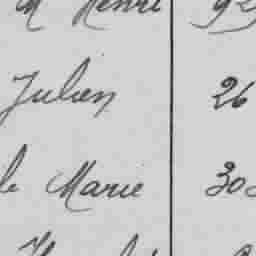 M Henri 92
Julien 26
le Marie 30